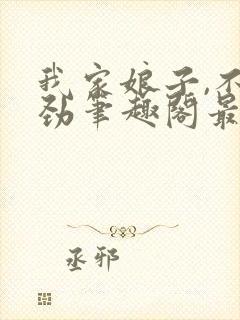 我家娘子,不
劲笔趣阁最
丞邪